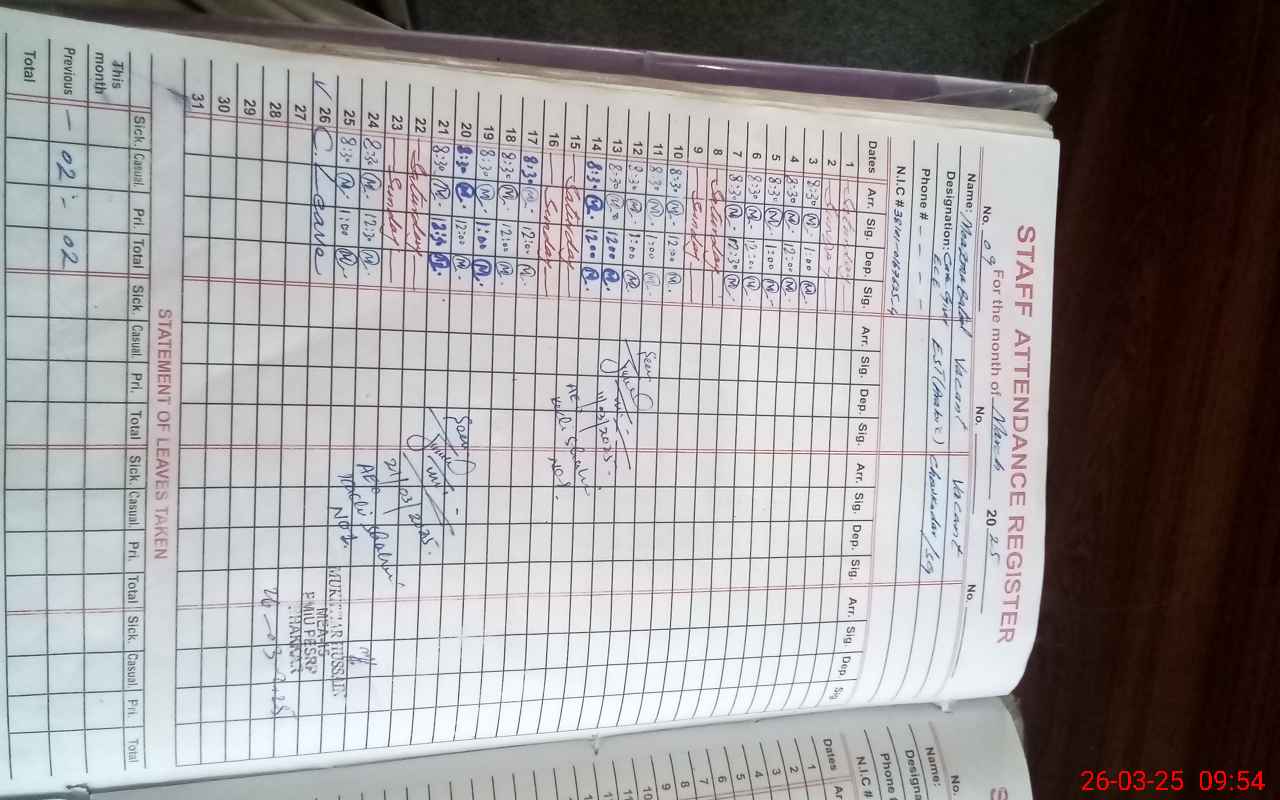 STAFF ATTENDANCE REGISTER
No. 09 For the month of March 2025
No. No.
Name: Vacant Vacant
Designation: Care Giver EST
ECE
Phone # - - - -
N.I.C #
Dates Arr. Sig. Dep. Sig. Arr. Sig. Dep. Sig. Arr. Sig. Dep. Sig. Arr. Sig. Dep. Sig
1 Saturday
2 Sunday
3 8:30 M 1:00 M
4 8:30 M 12:00 M
5 8:30 M 1:00 M
6 8:30 M 12:00 M
7 8:30 M 12:30 M
8 Saturday
9 Sunday
10 8:30 M 12:00 M
11 8:30 M 1:00 M
12 8:30 M 1:00 M
13 8:30 M 1200 M
14 8:30 M 1200 M
15 Saturday
16 Sunday
17 8:30 M 12:00 M
18 8:30 M 12:00 M
19 8:30 M 1:00 M
20 8:30 M 12:00 M
21 8:30 M M
22 Saturday
23 Sunday
24 8:30 M 12:30 M
25 8:30 M 1:00 M
26 C. Leave
27
28
29
30
31
Seen
11/03/2025
AEO
NO 2.
Seen
21/03/2025
AEO
NO 2.
MUKHTAR HUSSAIN
MEA-15
PMU PESRP
BHAKKAR
26-03-2025
STATEMENT OF LEAVES TAKEN
Sick. Casual. Pri. Total Sick. Casual. Pri. Total Sick. Casual. Pri. Total Sick. Casual. Pri. Total
This month
Previous - 02 - 02
Total
No.
Name:
Designa
Phone #
N.I.C #
Dates Ar
1
2
3
4
5
6
7
8
9
10
11
26-03-25 09:54